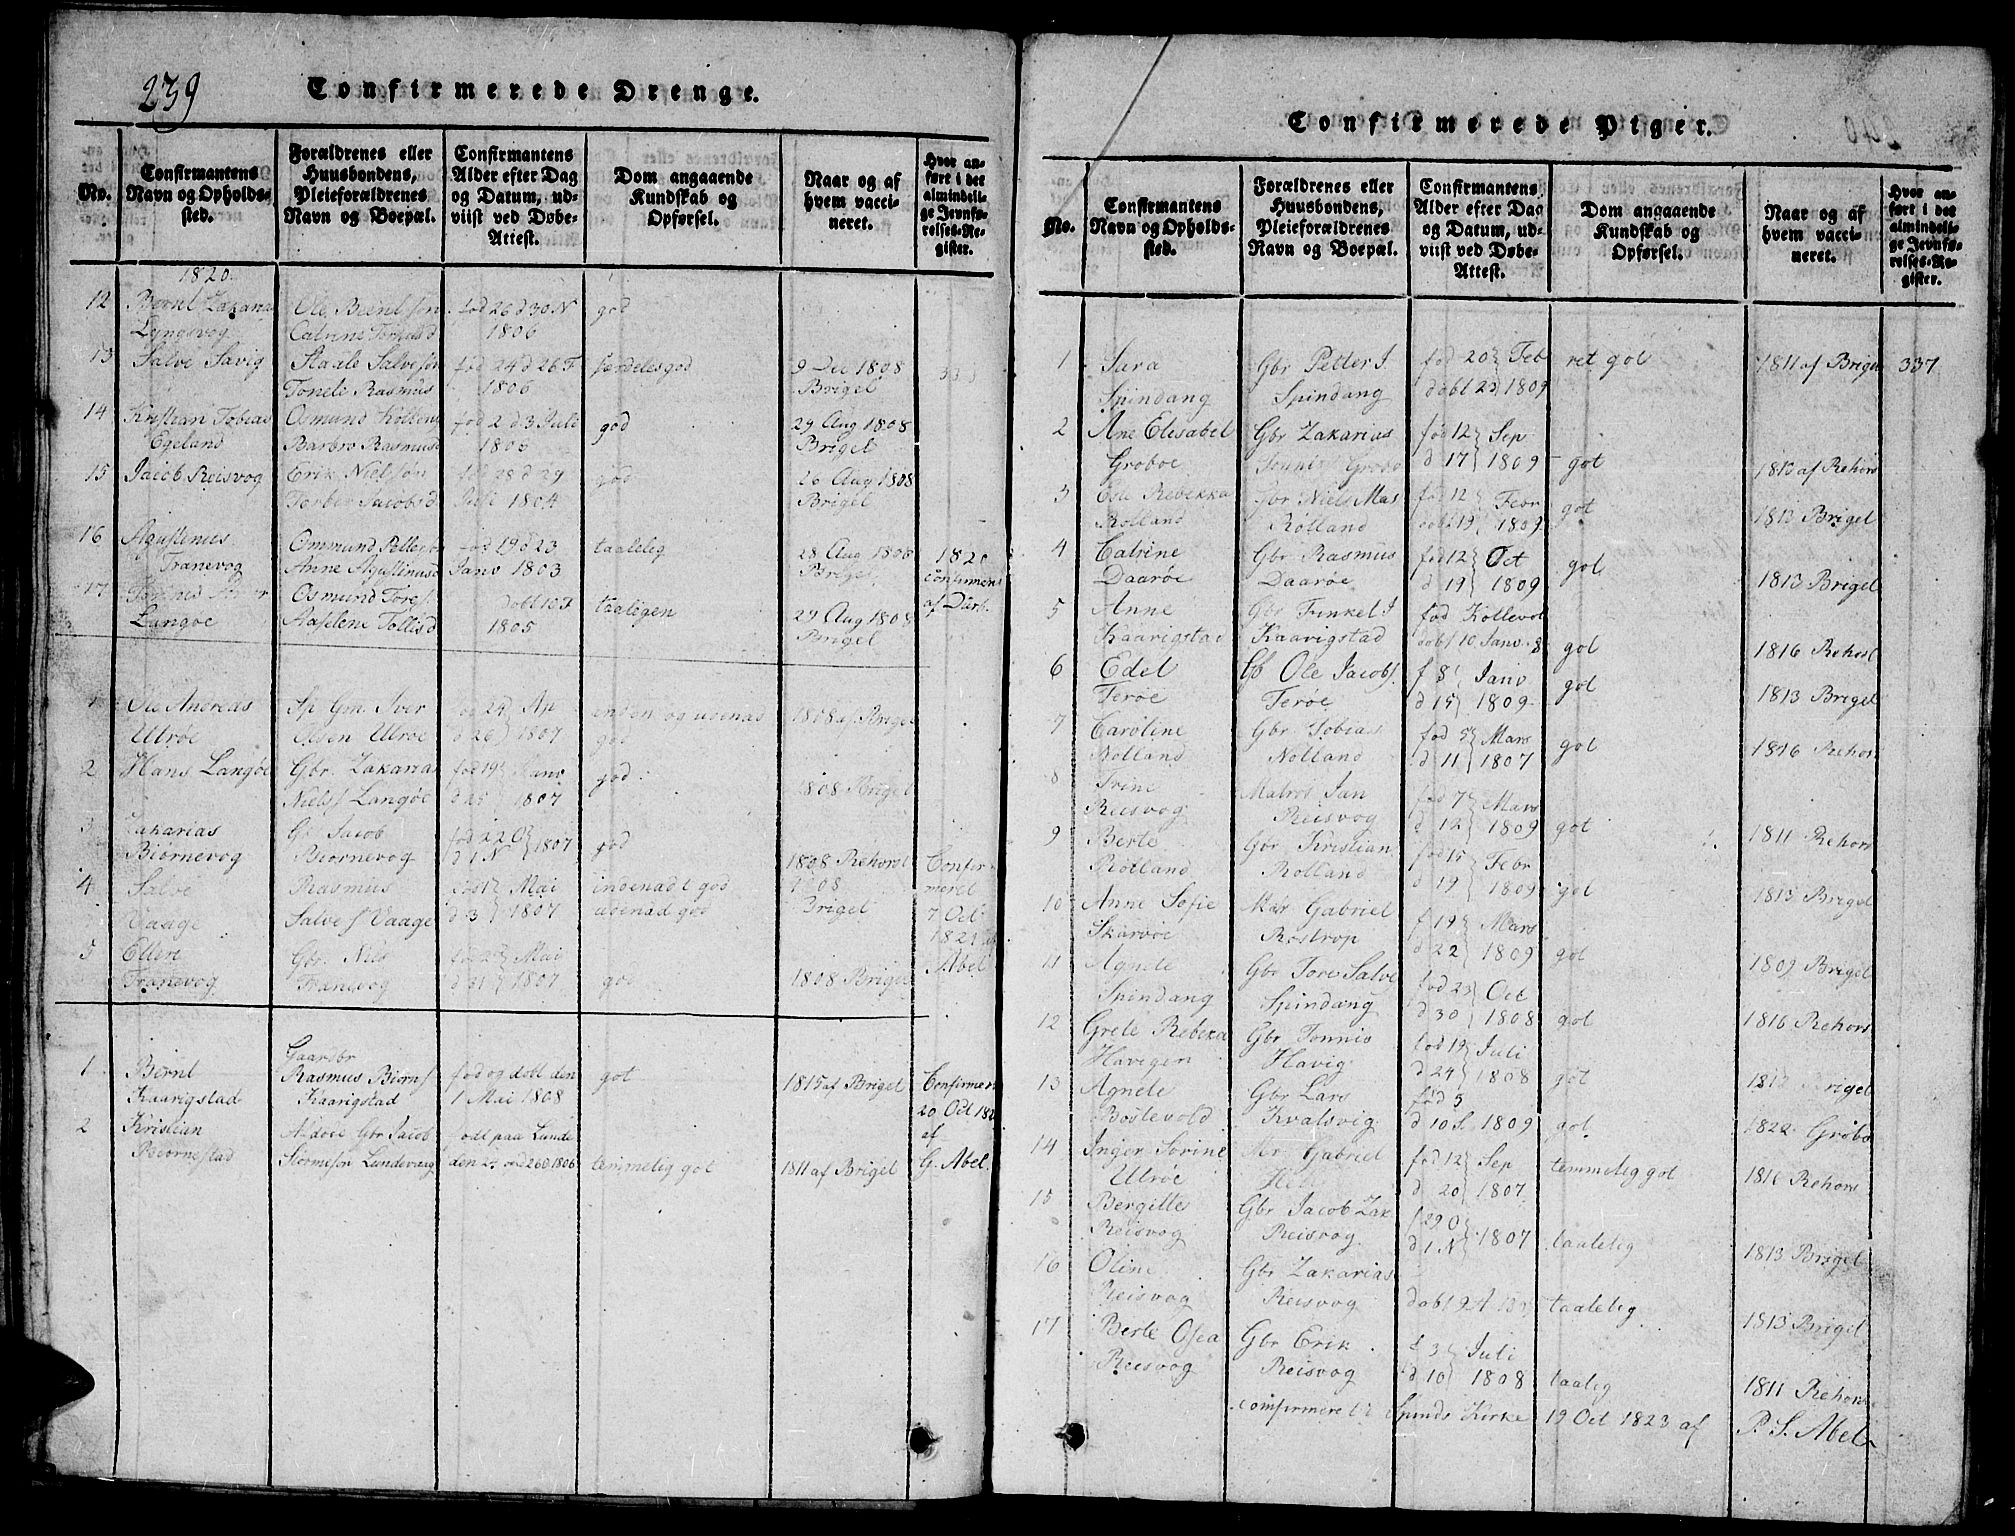 239
Confirmerede Drenge.
No.
Confirmantens Navn og Opholdssted.
Forældrenes eller Huusbondens, Pleieforældrenes Navn og Boepæl.
Confirmantens Alder efter Dag og Datum, udviist ved Døbe-Attest.
Dom angaaende Kundskab og Opførsel.
Naar og af hvem vaccineret.
Hvor anført i det almindelige Jevnførelses-Register.
1820.
12 Bernt Zakaria Ole Berntsøn fød 26 d 30 N god
Lyngsvog Catrine 1806
13 Salve Savig Staale Salvesøn fød 24 d 26 F særdelesgod 9 Dec 1808
Tonete Rasmus 1806 Brigel
14 Kristian Tobias Osmund fød 2 d 3 Juli god 29 Aug 1808
Egeland Barbro Rasmusd Brigel
15 Jacob Reisvog Erik Nielsøn fød 28 d 29 god 26 Aug 1808
Torber Jacobsd Juli 1804 Brigel
16 Agustinus Ommund Petter fød 19 d 23 taalelig 28 Aug 1808 1820
Tranevog Anne Agustinusd Janv 1803 Brigel confirmens
17 Osmund Tores. døbt 10 F taaligen 29 Aug 1808 af Darb.
Langøe Aaselene Tollisd 1805 Brigel
1 Ole Andreas Sp Gm. Iver fød 24 Ap inden og udenad 1808 af Brigel
Utrøe Olsen Utrøe d 26 1807 god
2 Hans Langøe Gbr. Zakaria fød 19 Janv god
Niels s Langøe d 25 1807 1808 Brigel
3 Zakarias Gbr Jacob fød 22 O 1807 god
Biørnevog Biørnevog d 1 N 1808 Rehorst Confir-
4 Salve Rasmus Mai indenadt god 1808 meret
Vaage Salve s Vaage d 3 1807 udenad god Brigel 7 Oct
1821 af
5 Ellert Gbr. Niels fød 25 Mai Abel
Tranevog Tranevog d 31 1807 god 1808 Brigel
Gaardbr
1 Bernt Rasmus Biørns fød og døbt den got 1815 af Brigel Confirme
Kaarigstad Kaarigstad 1 Mai 1808 20 Oct 182
2 Kristian Afdøde Gbr Jacob døbt paa Lunde af
Biørnestad Stormesøn Lundevaag temmelig got 1811 af Brigel G. Abel
Confirmerede Piger.
No.
Confirmantens Navn og Opholdssted.
Forældrenes eller Huusbondens, Pleieforældrenes Navn og Boepæl.
Confirmantens Alder efter Dag og Datum, udviist ved Døbe-Attest.
Dom angaaende Kundskab og Opførsel.
Naar og af hvem vaccineret.
Hvor anført i det almindelige Jevnførelses-Register.
1 Sara Gbr Petter I. fød 20 Feb ret got 1811 af Brigel 337
Spindang Spindang døbt 22 1809
2 Ane Elisabet Gbr Zakarias fød 12 Sep
Grøboe Grøbo d 17 1809 got 1813 af Rehors
3 Else Rebekka Gbr Niels Mas fød 12 Febr got
Rolland Rolland døbt 19 1809 1813 Brigel
4 Catrine Gbr Rasmus fød 12 Oct got
Daarøe Daarøe d 19 1809 1813 Brigel
5 Anne Gbr Tønkel I fød Kollevol
Kaarigstad Kaarigstad døbt 10 Janv. 8 got 1816 Rehorst
6 Edel Sp Ole Jacobs. f 8 Janv got
Terøe Terøe d 15 1809 1813 Brigel
7 Caroline Gbr Tobias fød 5 Mars got
Rolland Rolland d 11 1807 1816 Rehors
8 Trine Matros Jan fød 7 Mars
Reisvog Reisvog d 12 1809 got 1811 Rehors
9 Berte Gbr Kristian fød 15 Febr
Rolland Rolland d 19 1809 got 1813 Brigel
10 Anne Sofie Mar Gabriel f 19 Mars
Skarvøe Røstrop d 22 1809 got 1809 Brigel
11 Agnete Gbr Tore Salve fød 23 Oct
Spindang Spindang d 30 1808 got 1816 Rehors
12 Grete Rebeka Gbr Tønnis fød 19 Juli
Havigen Havig d 24 1808 got 1812 Brigel
13 Agnete Gbr Lars fød 5
Bøstevold Kvalsvig d 10 S. 1809 got 1822 Grøbo
14 Inger Sorine Mr Gabriel fød 12 Sep temmelig got
Utrøe d 20 1807 1816 Rehors
15 Bergitte Gbr Jacob Zak f 29 O
Reisvog Reisvog d 1 N 1807 taalelig 1813 Brigel
16 Oline Gbr Zakarias
Reisvog Reisvog døbt 9 A taalelig 1813 Brigel
17 Berte Osea Gbr Erik f 3 Juli
Reisvog Reisvog d 10 1808 taalig 1811 Rehors
comfirmeret i Spinds Kirke 19 Oct 1823 af P. S. Abel